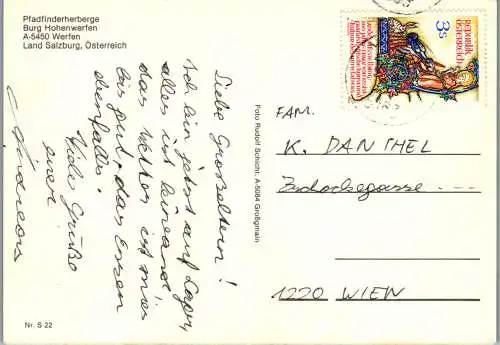 Pfadfinderherberge
Burg Hohenwerfen
A-5450 Werfen
Land Salzburg, Österreich
Liebe Großeltern!
Ich bin jetzt auf Lager,
alles ist leiwand!
das Wetter ist mies
bis gut, das Essen
ebenfalls!
Viele Grüße
euer
Andreas
Nr. S 22
Foto Rudolf Schlicht, A-5084 Großgmain
republik
österreich
3s
FAM.
K. DANTHEL
Zschockegasse ---
1220 WIEN